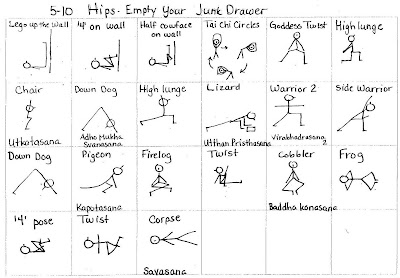 5-10 Hips- Empty Your Junk Drawer
Legs up the Wall
'4' on wall
Half cowface
on wall
Tai Chi Circles
Goddess Twist
High lunge
Chair
Utkatasana
Down Dog
Adho Mukha
Svanasana
High lunge
Lizard
Utthan Pristhasana
Warrior 2
Virabhadrasana
2
Side Warrior
Down Dog
Pigeon
Kapotasana
Firelog
Twist
Cobbler
Baddha konasana
Frog
'4' pose
Twist
Corpse
Savasana